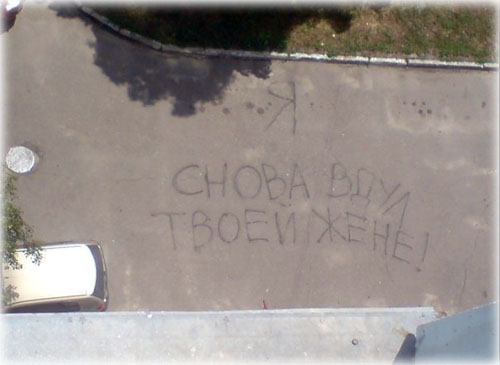 Я
СНОВА ВДУЛ
ТВОЕЙ ЖЕНЕ!